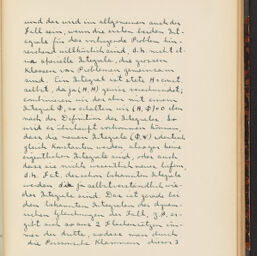 und das wird im allgemeinen auch der
Fall sein, wenn die ersten beiden Int-
egrale für das vorliegende Problem hin-
reichend willkürlich sind, d.h. nicht et-
wa spezielle Integrale, die grossen
Klassen von Problemen gemeinsam
sind. Ein Integral ist stets H = const
selbst, da ja (H, H) genau verschwindet;
combinieren wir das aber mit einem
Integral Φ, so erhalten wir (H, Φ) = 0 eben
nach der Definition des Integrales. So
wird es überhaupt vorkommen können,
dass die neuen Integrale (Φ, Ψ) identisch
gleich Konstanten werden also gar keine
eigentlichen Integrale sind, oder auch
dass sie nichts wesentlich neues liefern,
d.h. Fct. der schon bekannten Integrale
werden die ja selbstverständlich wie-
der Integrale sind. Das ist gerade bei
den bekannten Integralen der dynam-
ischen Gleichungen der Fall, z.B. er-
gibt sich so aus 2 Flächensätzen im-
mer der dritte, sodass man durch
die Poissonsche Klammer dieser 3